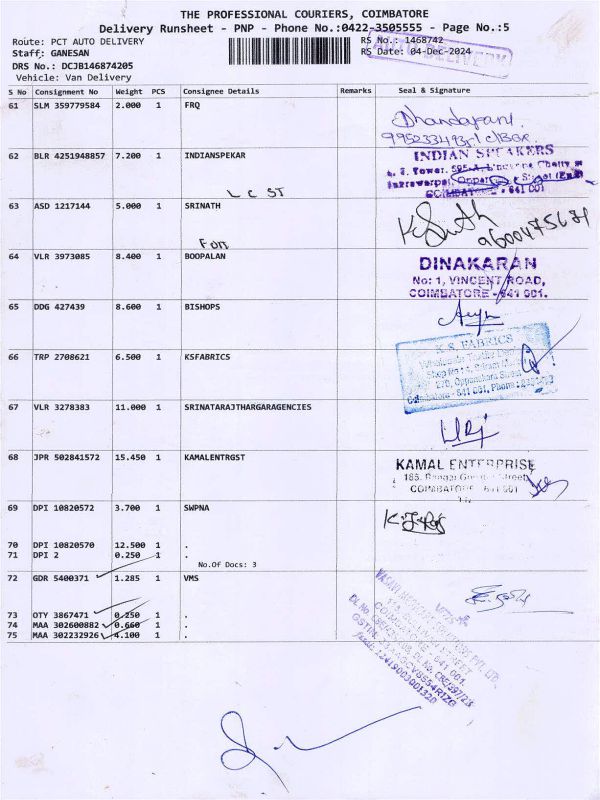 THE PROFESSIONAL COURIERS, COIMBATORE
Delivery Runsheet - PNP - Phone No.:0422-3505555 - Page No.:5
Route: PCT AUTO DELIVERY
RS No.: 1468742
AUTO DELIVERY
Staff: GANESAN
RS Date: 04-Dec-2024
DRS No.: DCJB146874205
Vehicle: Van Delivery
S No Consignment No Weight PCS Consignee Details Remarks Seal & Signature
61 SLM 359779584 2.000 1 FRQ
Dhandapani
62 BLR 4251948857 7.200 1 INDIANSPEKAR
INDIAN SPEAKERS
COIMBATORE - 641 001
L C ST
63 ASD 1217144 5.000 1 SRINATH
9600475671
64 VLR 3973085 8.400 1 BOOPALAN
DINAKARAN
No: 1, VINCENT ROAD,
COIMBATORE - 641 001.
65 DDG 427439 8.600 1 BISHOPS
66 TRP 2708621 6.500 1 KSFABRICS
K.S. FABRICS
270, Oppanakara Street
Coimbatore - 641 001, Phone :
67 VLR 3278383 11.000 1 SRINATARAJTHARGARAGENCIES
68 JPR 502841572 15.450 1 KAMALENTRGST
KAMAL ENTERPRISE
COIMBATORE - 641 001
69 DPI 10820572 3.700 1 SWPNA
70 DPI 10820570 12.500 1 .
71 DPI 2 0.250 1 .
No.Of Docs: 3
72 GDR 5400371 1.285 1 VMS
73 OTY 3867471 0.250 1 .
74 MAA 302600882 0.660 1 .
75 MAA 302232926 4.100 1 .
COIMBATORE - 641 001.